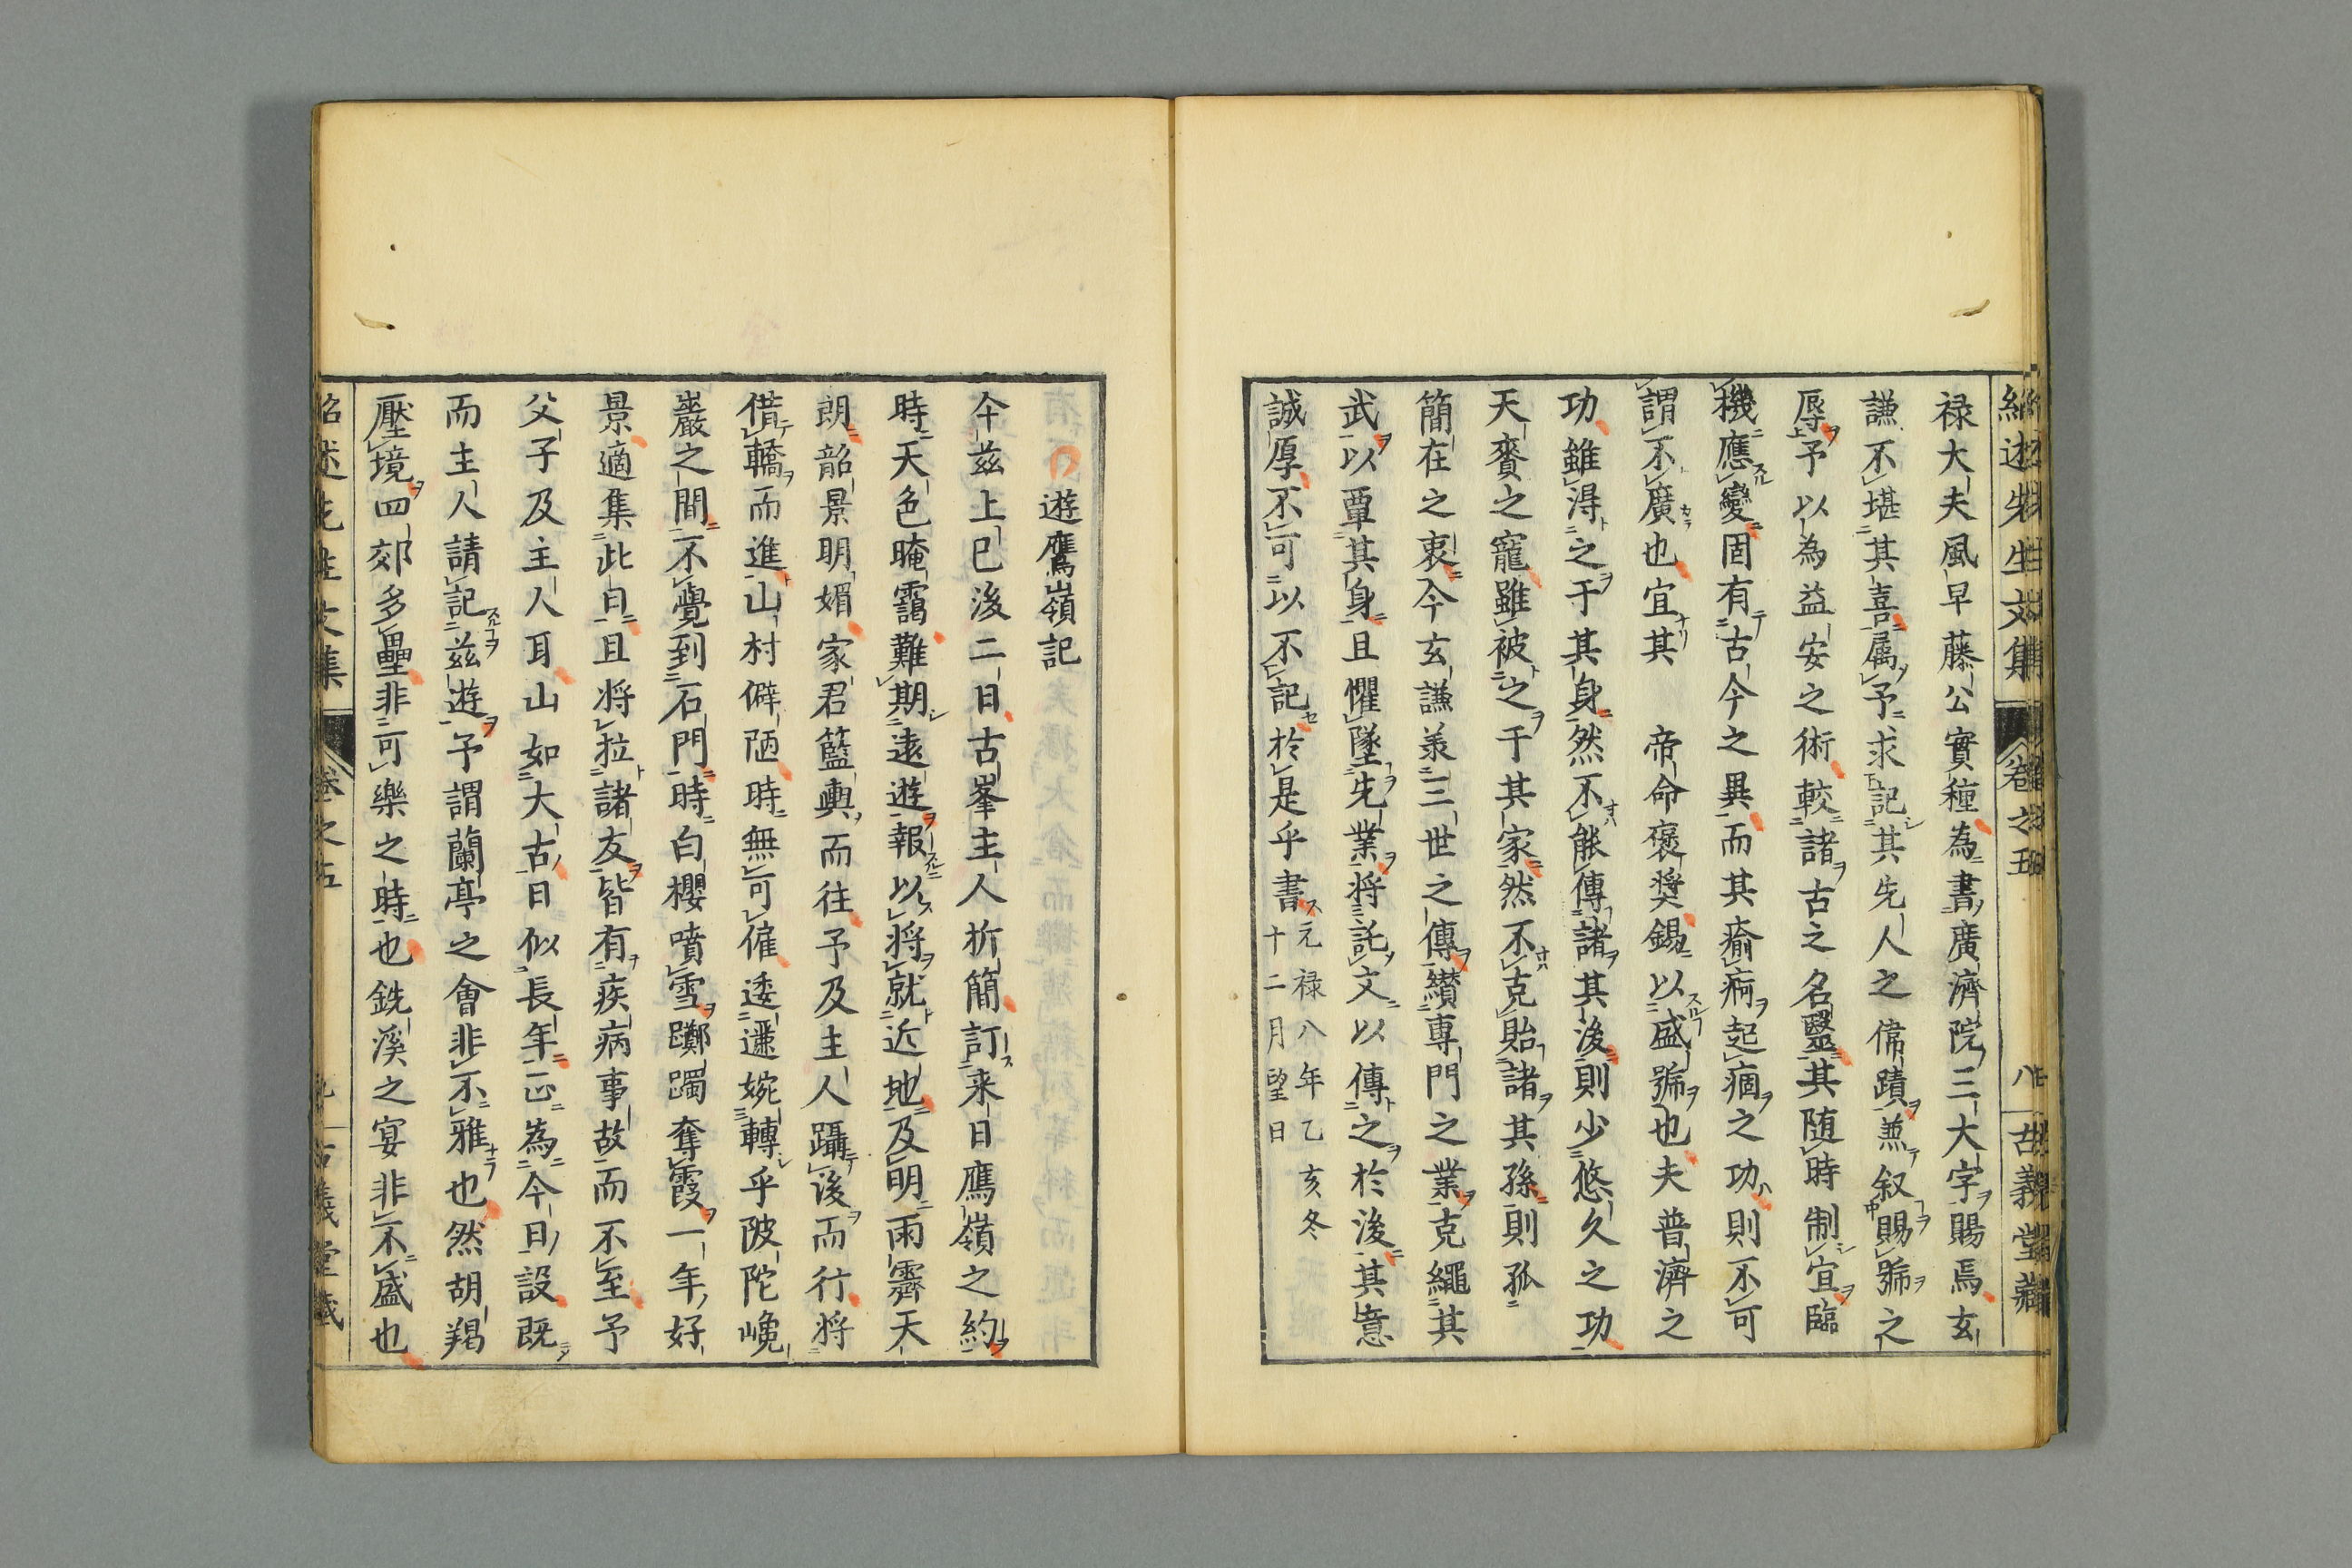 紹述先生文集 卷之五 八 古義堂藏
禄大夫風早藤公實種為書廣濟院三大字賜焉玄
謙不堪其喜属予求記其先人之偉蹟兼叙賜号之
辱予以為益安之術較諸古之名醫其随時制宜臨
機應變固有古今之異而其瘉痾起痼之功則不可
謂不廣也宜其 帝命褒奨錫以盛号也夫普濟之
功雖得之于其身然不能傳諸其後則少悠久之功
天賚之寵雖被之于其家然不克貽諸其孫則孤
簡在之衷今玄謙羕三世之傳纉專門之業克繩其
武以覃其身且懼墜先業将託文以傳之於後其意
誠厚不可以不記於是乎書元禄八年乙亥冬十二月望日
遊鷹嶺記
今兹上巳後二日古峯主人折簡訂来日鷹嶺之約
時天色晻靄難期遠遊報以将就近地及明雨霽天
朗韶景明媚家君籃輿而往予及主人躡後而行将
借轎而進山村僻陋時無可僱逶邐婉轉乎陂陀巉
巖之間不覺到石門時白櫻噴雪躑躅奪霞一年好
景適集此日且将拉諸友皆有疾病事故而不至予
父子及主人耳山如大古日似長年正為今日設既
而主人請記兹遊予謂蘭亭之會非不雅也然胡羯
壓境四郊多壘非可樂之時也銑溪之宴非不盛也
紹述先生文集 卷之五 九 古義堂藏